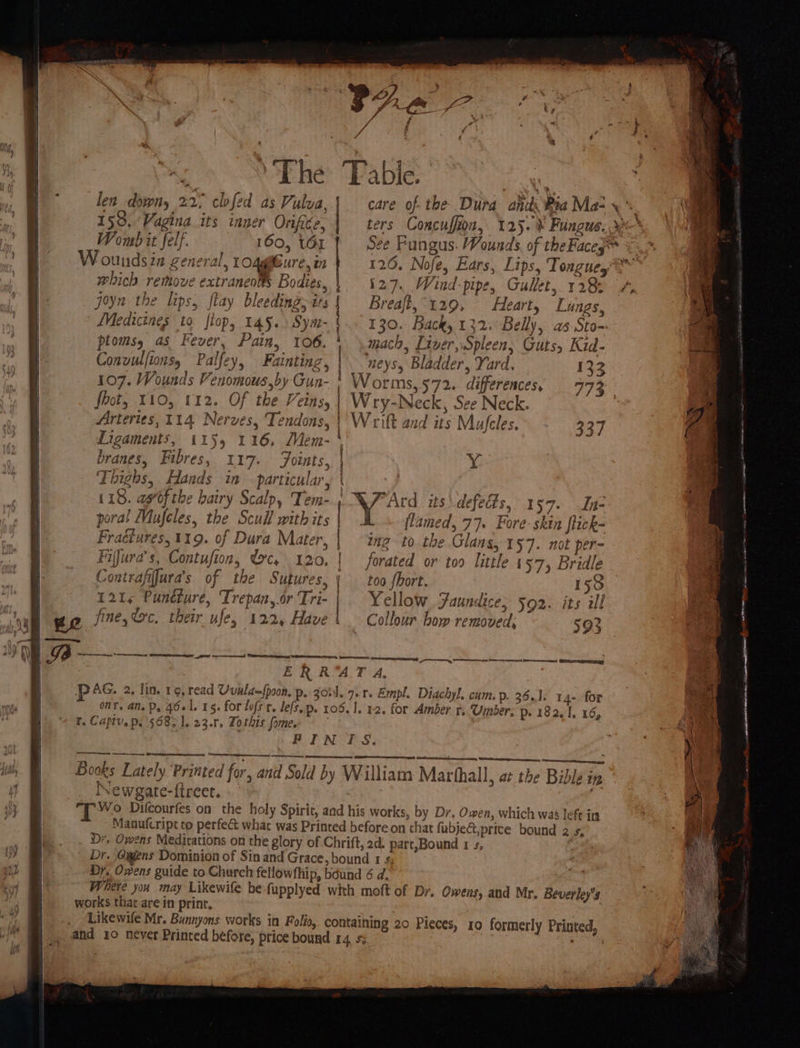 The Table.
len down, 22. closed as Vulva,
158. Vagina its inner Orifice,
Womb it self. 160, 161
Wounds in general, 104 Cure, in
which remove extraneous Bodies,
joyn the lips, stay bleeding, its
Medicines to stop, 145. Sym-
ptoms, as Fever, Pain, 106.
Convulsions, Palsey, Fainting,
107. Wounds Venomous, by Gun-
shot, 110, 112. Of the Veins,
Arteries, 114 Nerves, Tendons,
Ligaments, 115, 116, Mem-
branes, Fibres, 117. Joints,
Thighs, Hands in particular,
118. as of the hairy Scalp, Tem-
poral Muscles, the Scull with its
Fractures, 119. of Dura Mater,
Fissura's, Contusion, &c, 120.
Contrafissura's of the Sutures,
121. Puncture, Trepan, or Tri-
fine, &c. their use, 122, Have
care of the Dura and Pia Ma-
ters Concussion, 125. Fungus.
See Fungus. Wounds of the Face,
126. Nose, Ears, Lips, Tongue,
127. Wind-pipe, Gullet, 128.
Breast, 129. Heart, Lungs,
130. Back, 132. Belly, as Sto-
mach, Liver, Spleen, Guts, Kid-
neys, Bladder, Yard. 133
Worms, 572. differences, 773
Wry-Neck, See Neck.
Wrist and its Muscles. 337
Y
YArd its defects, 157. In-
flamed, 77. Fore-skin stick-
ing to the Glans, 157. not per-
forated or too little 157, Bridle
too short. 158
Yellow Jaundice, 592. its ill
Collour how removed, 593
ERRATA.
PAG. 2. lin. 19, read Uvula-spoon. p. 30. l. 7. r. Empl. Diachyl. cum. p. 36. l. 14. for
onr. an. p. 46. l. 15. for loss r. less. p. 106. l. 12. for Amber r. Umber. p. 182. l. 16,
r. Capiv. p. 568. l. 23. r. To this some.
FINIS.
Books Lately Printed for, and Sold by William Marshall, at the Bible in
Newgate-street.
TWo Discourses on the holy Spirit, and his works, by Dr. Owen, which was left in
Manuscript to perfect what was Printed before on that subject, price bound 2 s.
Dr. Owens Meditations on the glory of Christ, 2d. part, Bound 1 s,
Dr. Owens Dominion of Sin and Grace, bound 1 s,
Dr. Owens guide to Church fellowship, bound 6 d.
Where you may Likewise be supplyed with most of Dr. Owens, and Mr. Beverley's
works that are in print.
Likewise Mr. Bunnyons works in Folio, containing 20 Pieces, 10 formerly Printed,
and 10 never Printed before, price bound 14 s.